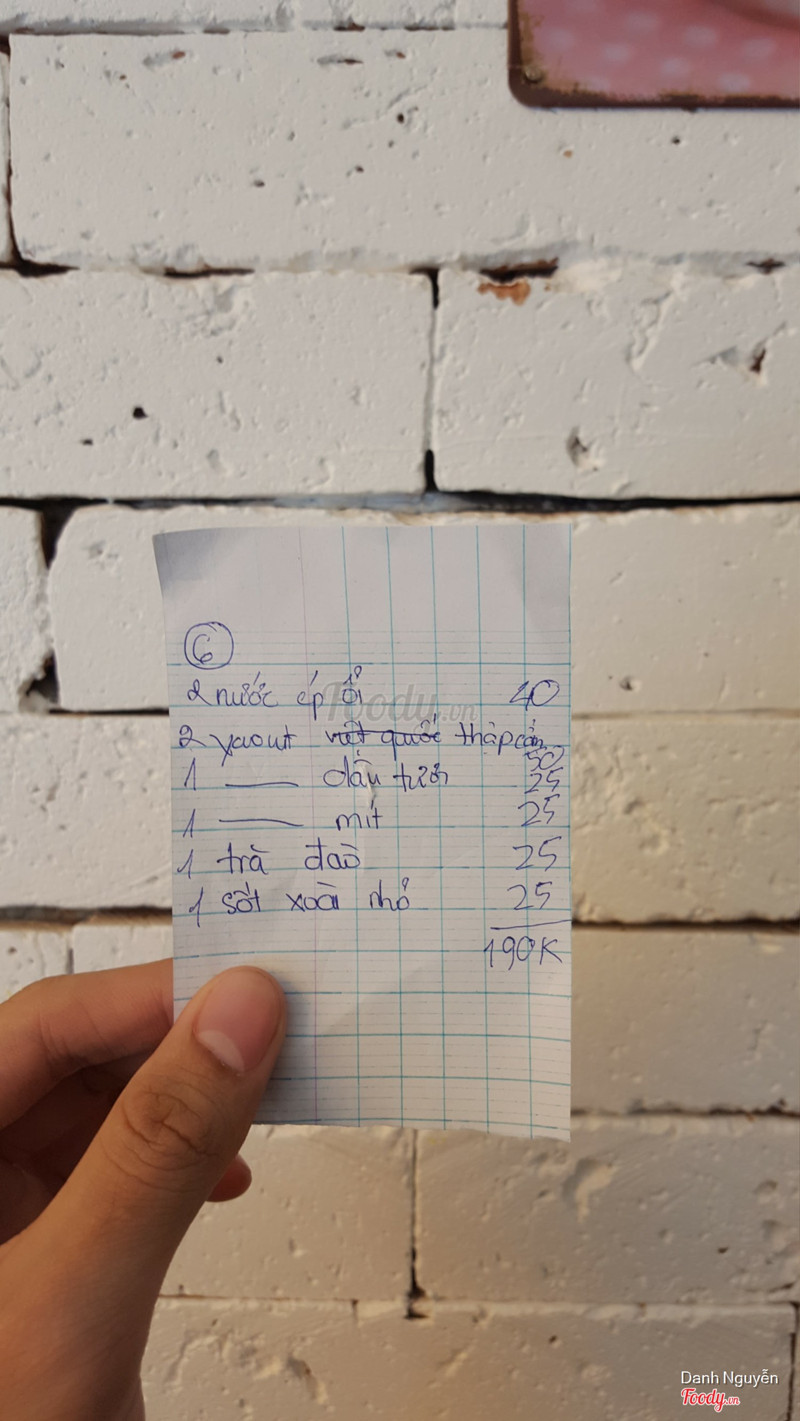 6
2 nước ép ổi 40
2 yaout việt quốc thập cẩm 50
1 —— dâu tươi 25
1 —— mít 25
1 trà đào 25
1 sốt xoài nhỏ 25
190K
Foody.vn
Danh Nguyễn
Foody.vn